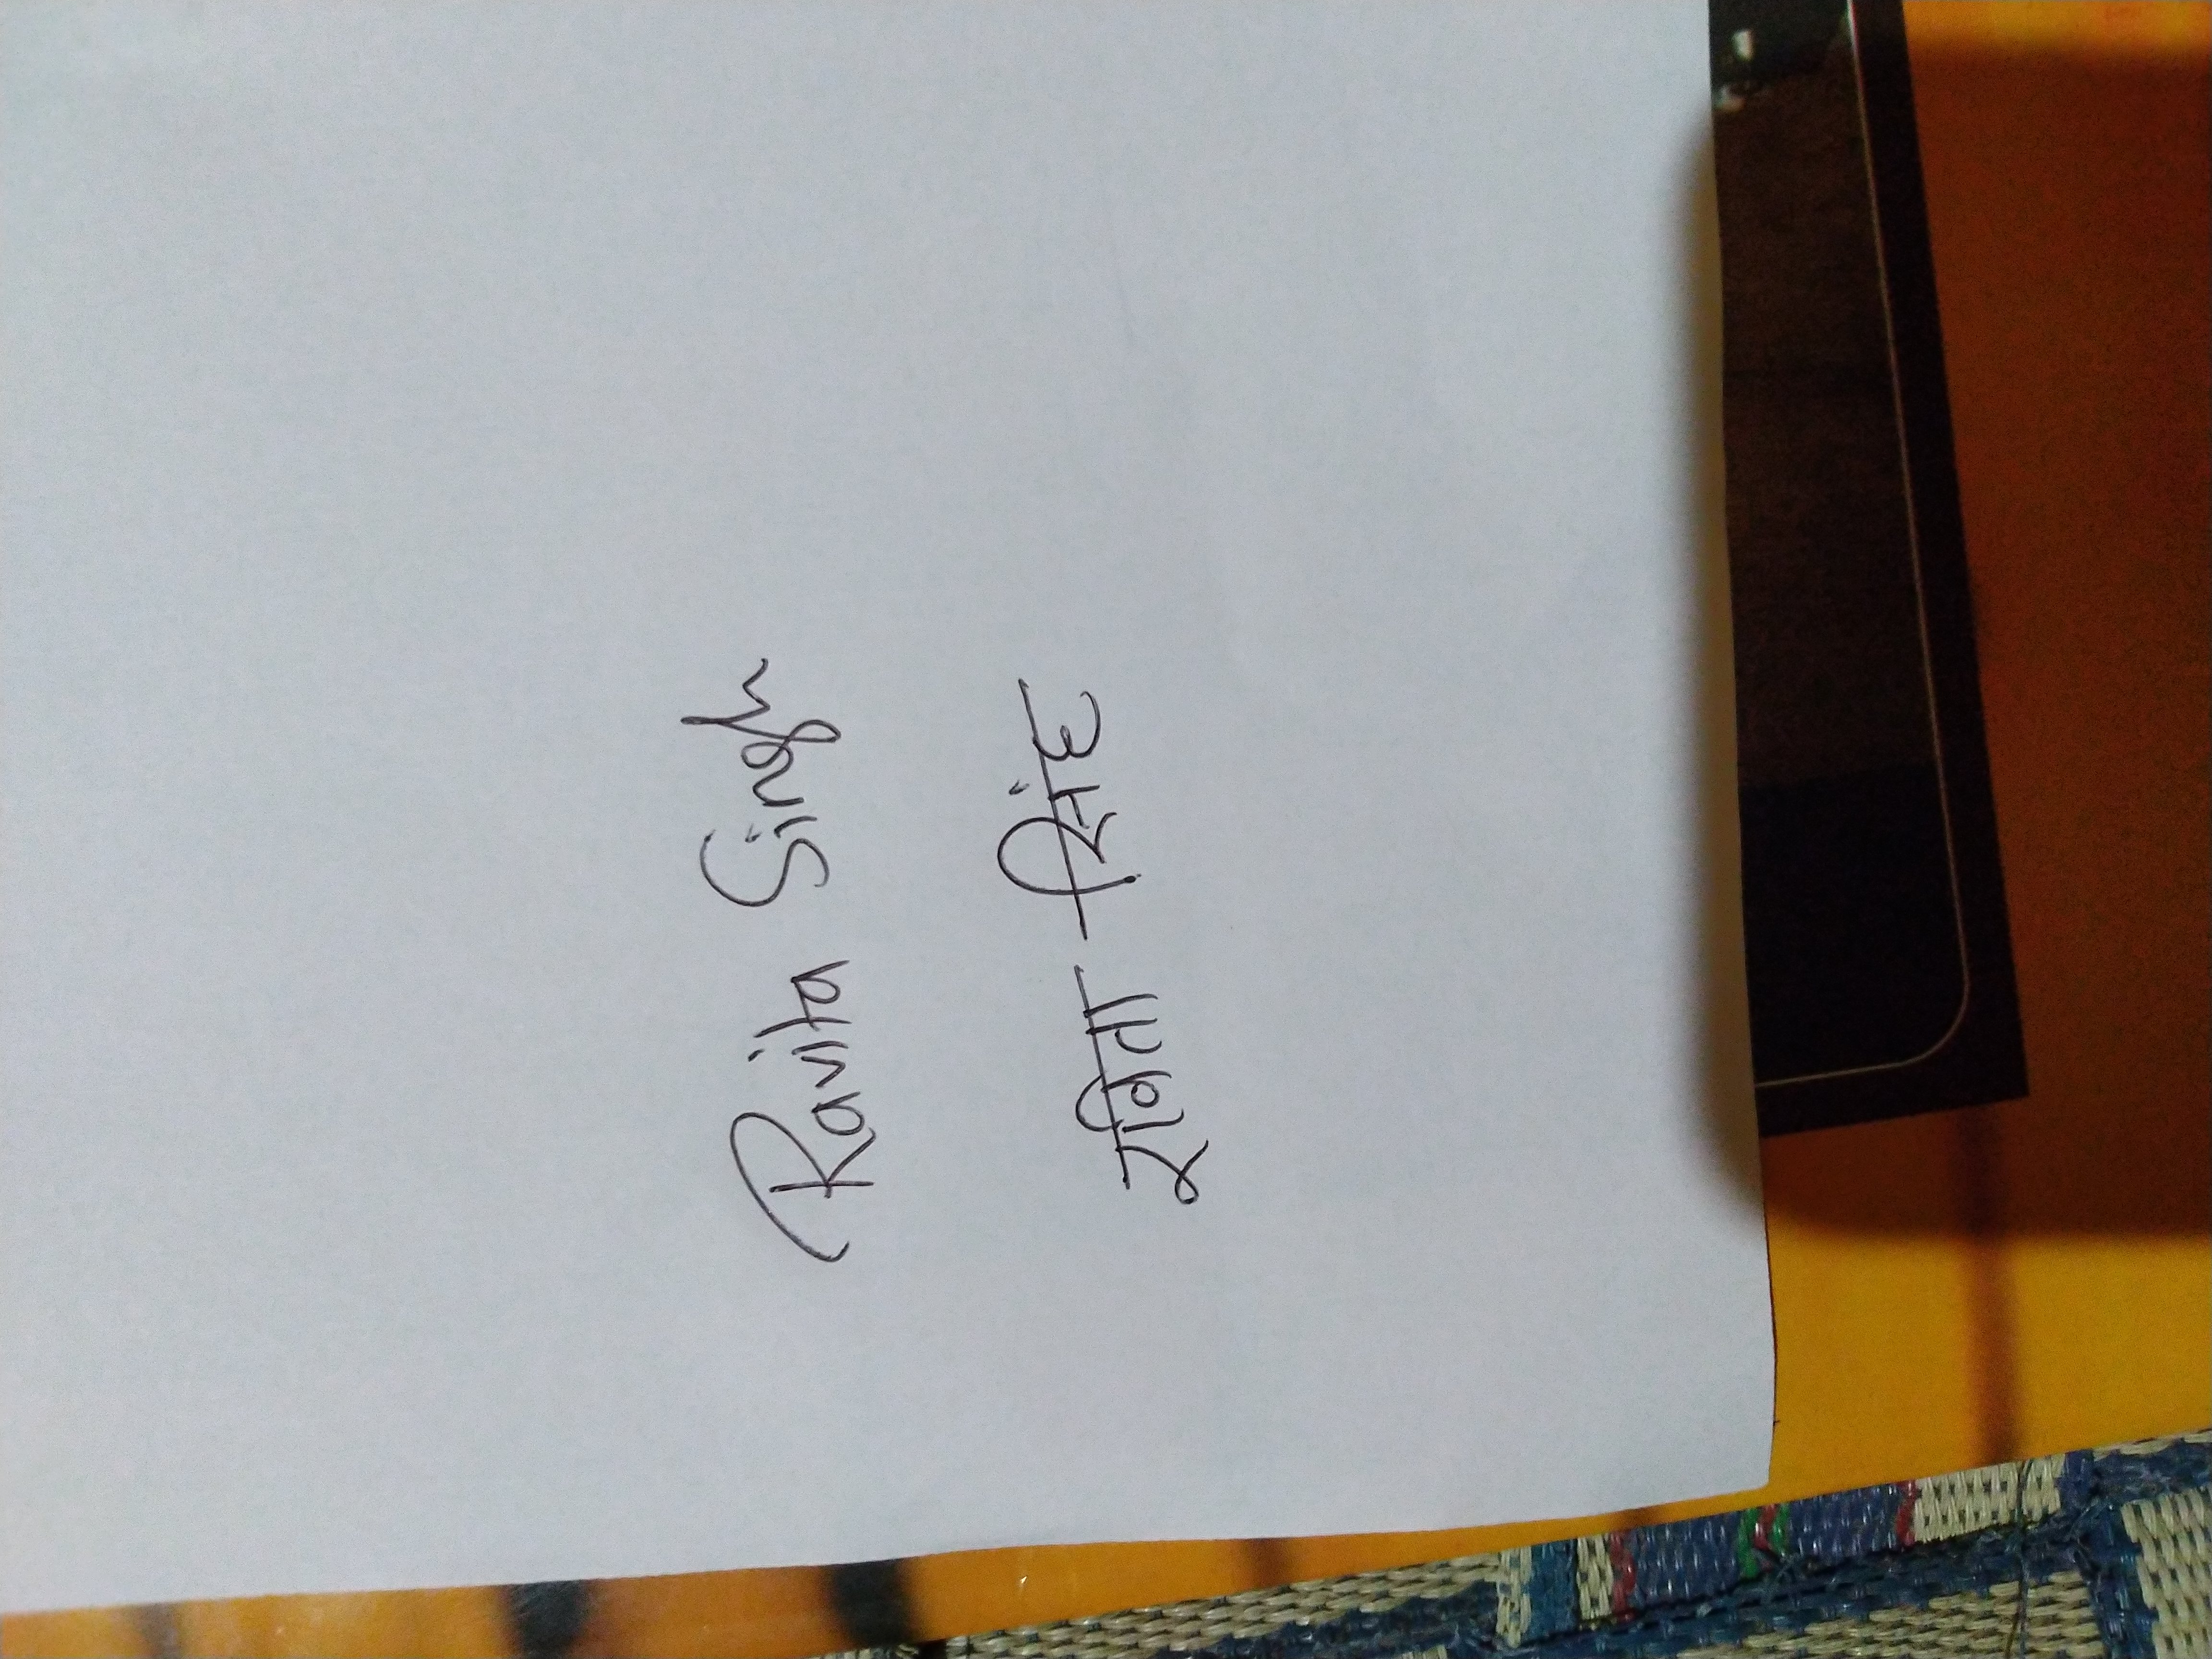 Ravita Singh
रविता सिंह